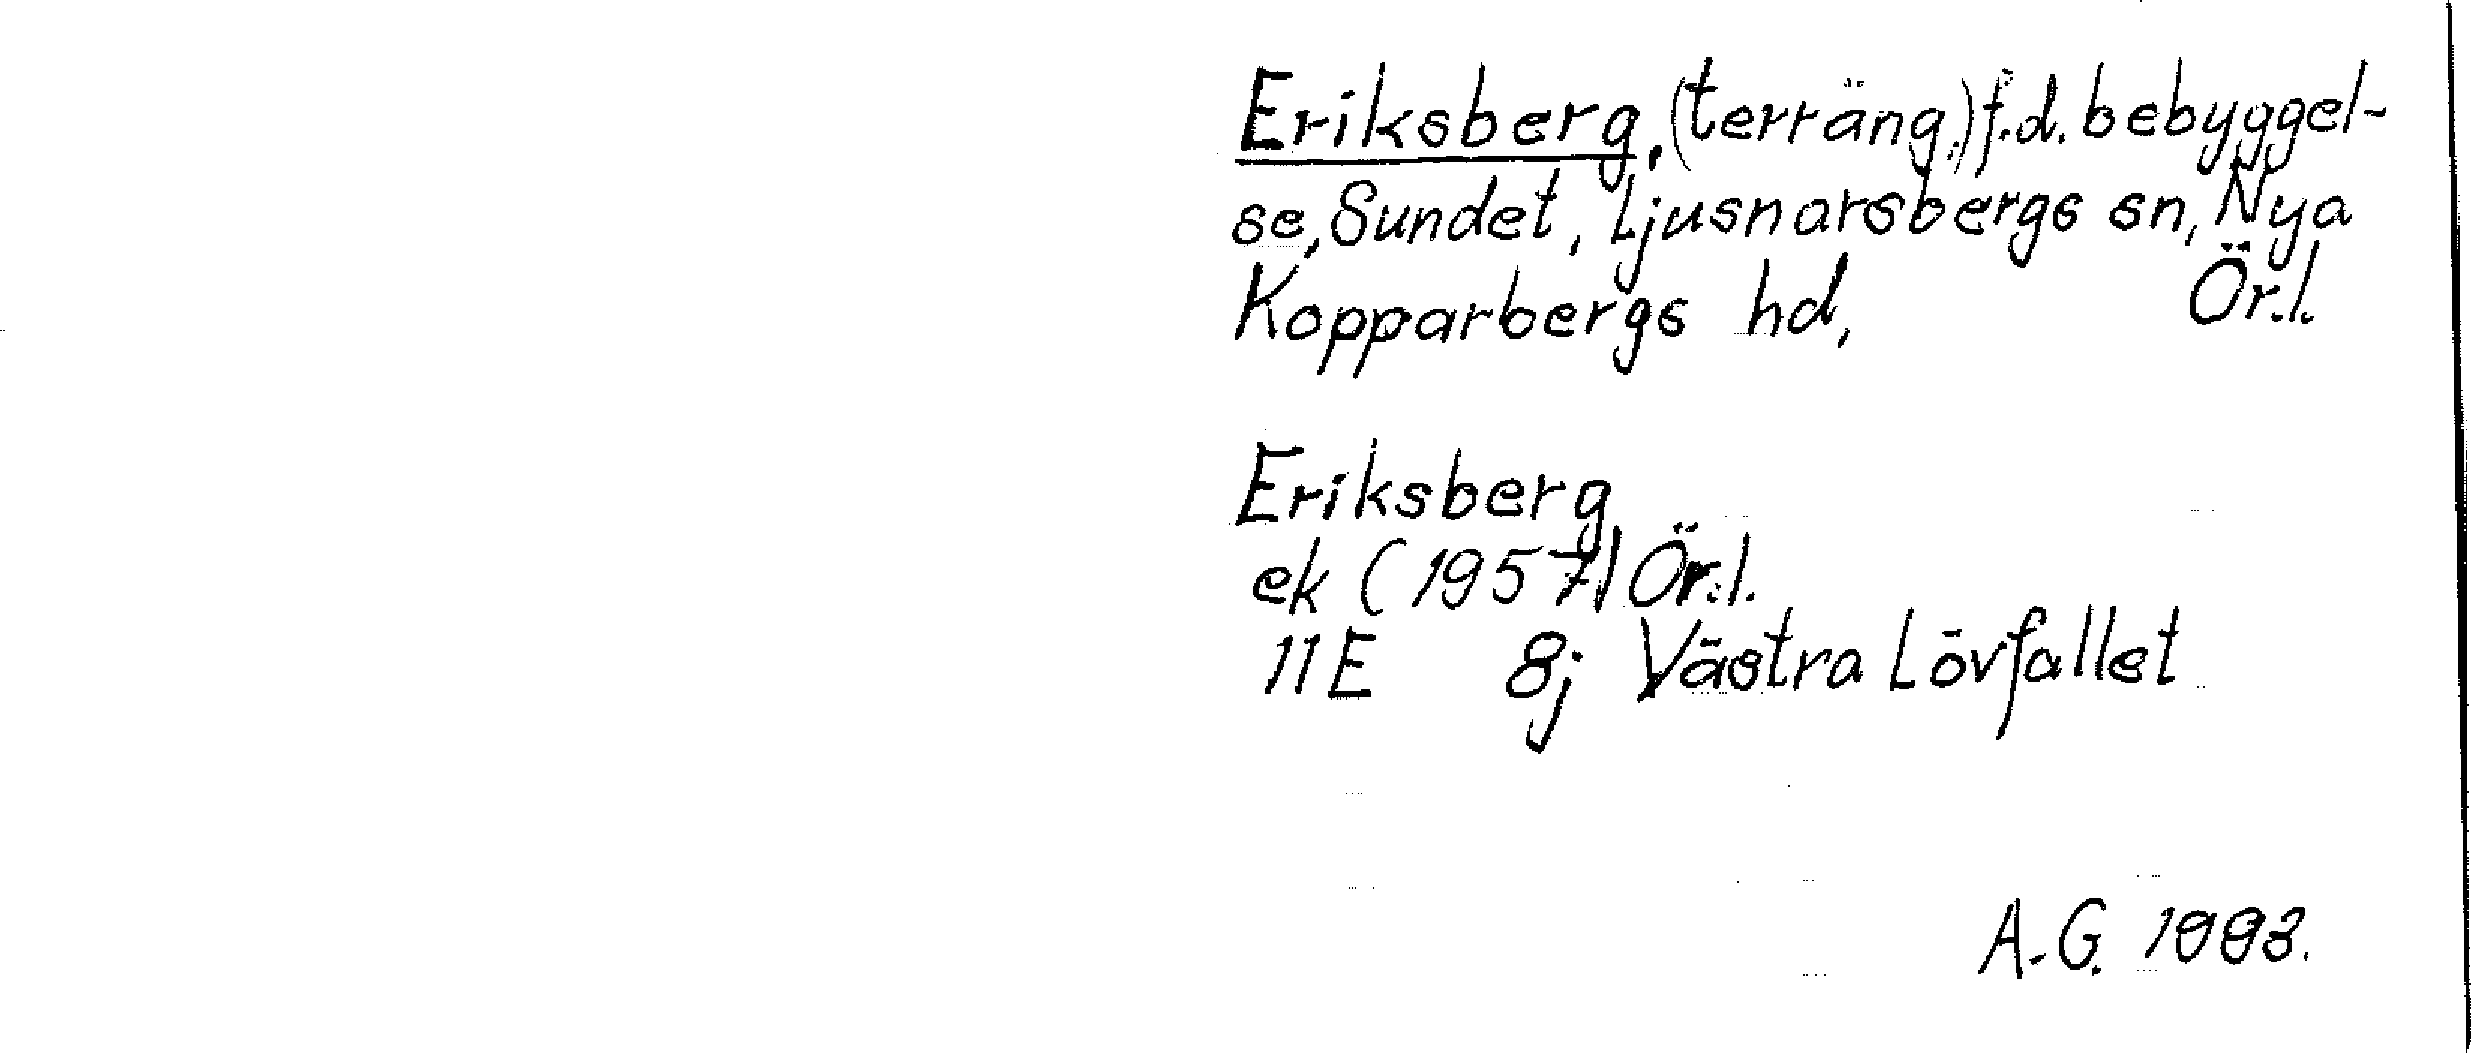 Eriksberg, (terräng,) f.d. bebyggel-
se, Sundet, Ljusnarsbergs sn, Nya
Kopparbergs hd, Ör.l.
Eriksberg
ek (1957) Ör.l.
11E 8j Västra Lövfallet
A-G. 1993.